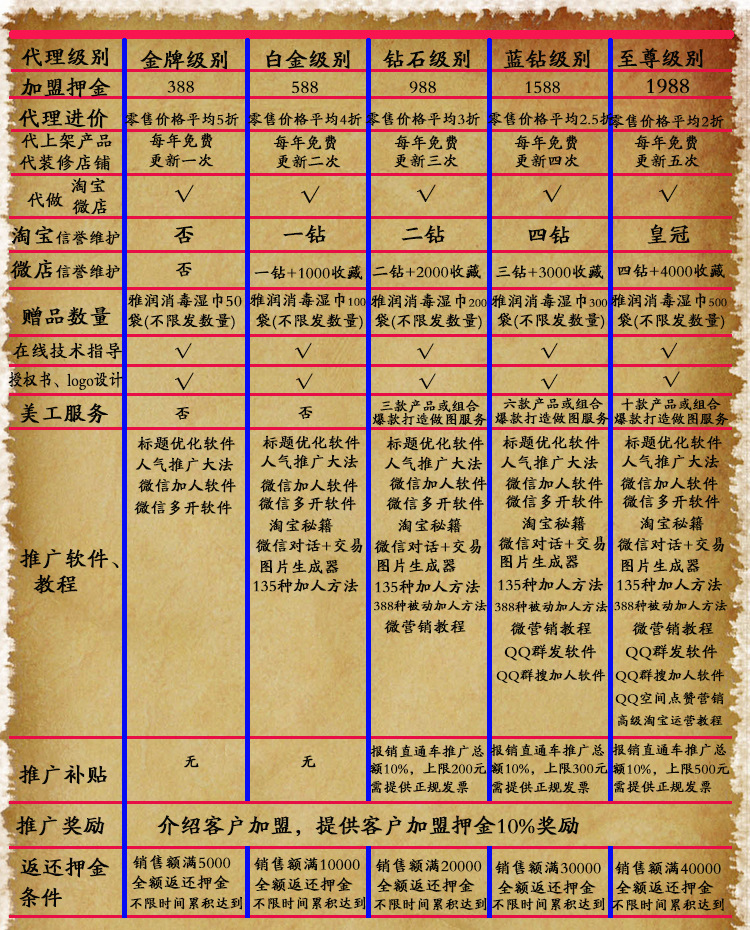 代理级别 金牌级别 白金级别 钻石级别 蓝钻级别 至尊级别
加盟押金 388 588 988 1588 1988
代理进价 零售价格平均5折 零售价格平均4折 零售价格平均3折 零售价格平均2.5折 零售价格平均2折
代上架产品 每年免费 每年免费 每年免费 每年免费 每年免费
代装修店铺 更新一次 更新二次 更新三次 更新四次 更新五次
代做 淘宝 √ √ √ √ √
微店
淘宝信誉维护 否 一钻 二钻 四钻 皇冠
微店信誉维护 否 一钻+1000收藏 二钻+2000收藏 三钻+3000收藏 四钻+4000收藏
赠品数量 雅润消毒湿巾50 雅润消毒湿巾100 雅润消毒湿巾200 雅润消毒湿巾300 雅润消毒湿巾500
袋(不限发数量) 袋(不限发数量) 袋(不限发数量) 袋(不限发数量) 袋(不限发数量)
在线技术指导 √ √ √ √ √
授权书、logo设计 √ √ √ √ √
美工服务 否 否 三款产品或组合 六款产品或组合 十款产品或组合
爆款打造做图服务 爆款打造做图服务 爆款打造做图服务
推广软件、
教程
标题优化软件 标题优化软件 标题优化软件 标题优化软件 标题优化软件
人气推广大法 人气推广大法 人气推广大法 人气推广大法 人气推广大法
微信加人软件 微信加人软件 微信加人软件 微信加人软件 微信加人软件
微信多开软件 微信多开软件 微信多开软件 微信多开软件 微信多开软件
淘宝秘籍 淘宝秘籍 淘宝秘籍 淘宝秘籍
微信对话+交易 微信对话+交易 微信对话+交易 微信对话+交易
图片生成器 图片生成器 图片生成器 图片生成器
135种加人方法 135种加人方法 135种加人方法 135种加人方法
388种被动加人方法 388种被动加人方法 388种被动加人方法
微营销教程 微营销教程 微营销教程
QQ群发软件 QQ群发软件
QQ群搜加人软件 QQ群搜加人软件
QQ空间点赞营销
高级淘宝运营教程
推广补贴 无 无 报销直通车推广总 报销直通车推广总 报销直通车推广总
额10%，上限200元 额10%，上限300元 额10%，上限500元
需提供正规发票 需提供正规发票 需提供正规发票
推广奖励 介绍客户加盟，提供客户加盟押金10%奖励
返还押金 销售额满5000 销售额满10000 销售额满20000 销售额满30000 销售额满40000
条件 全额返还押金 全额返还押金 全额返还押金 全额返还押金 全额返还押金
不限时间累积达到 不限时间累积达到 不限时间累积达到 不限时间累积达到 不限时间累积达到